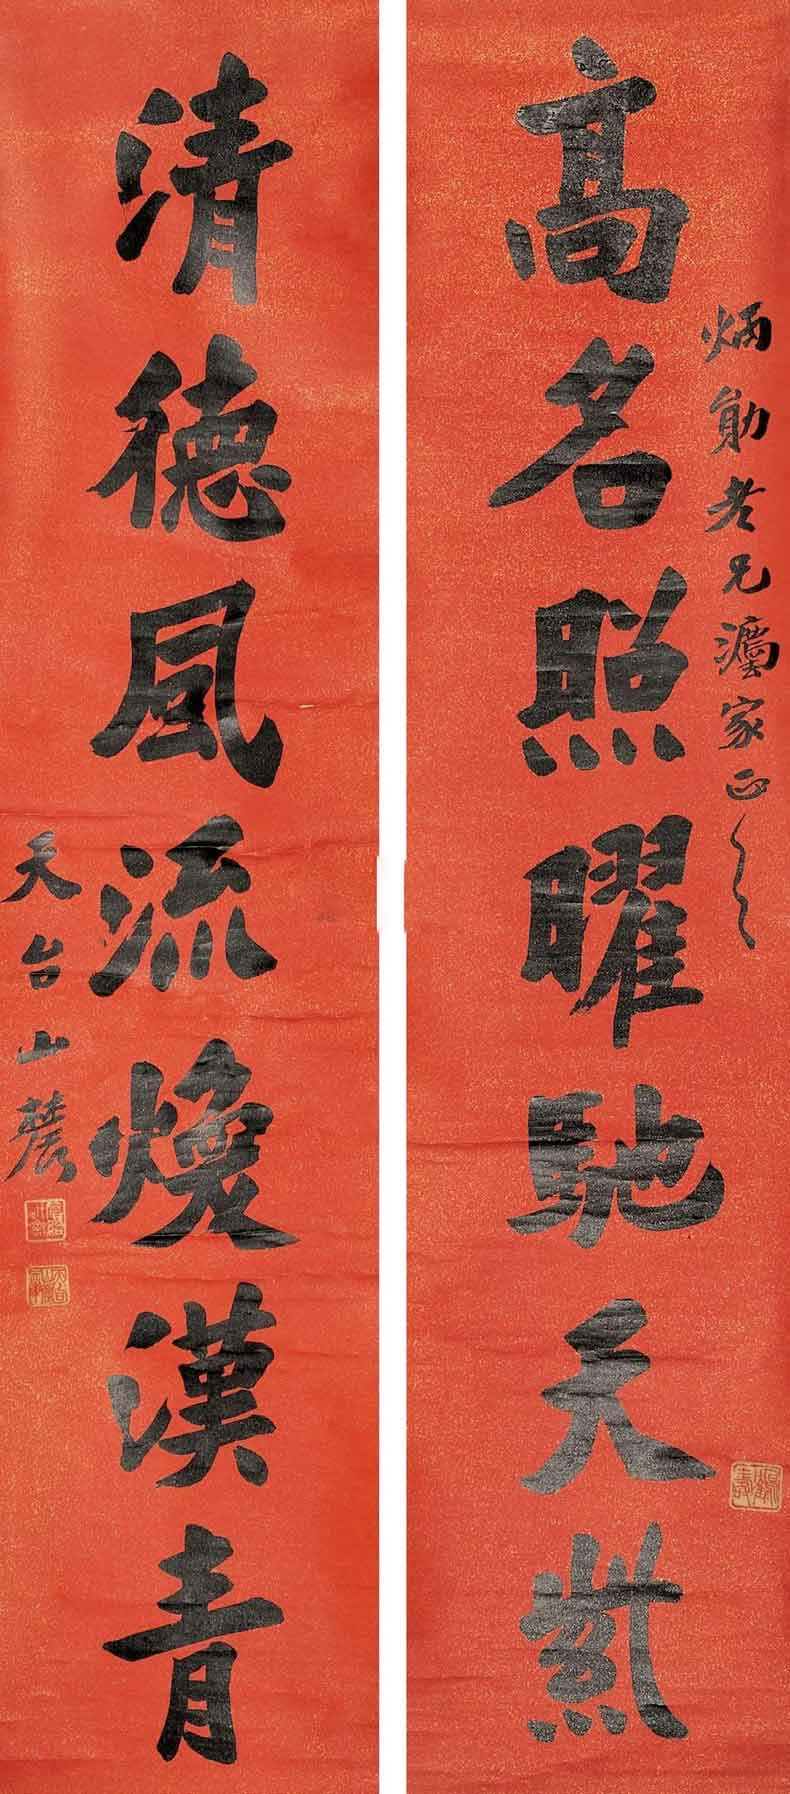 炳勛老兄灋家正之
高名照曜馳天紫
清德風流煥漢青
天台山農